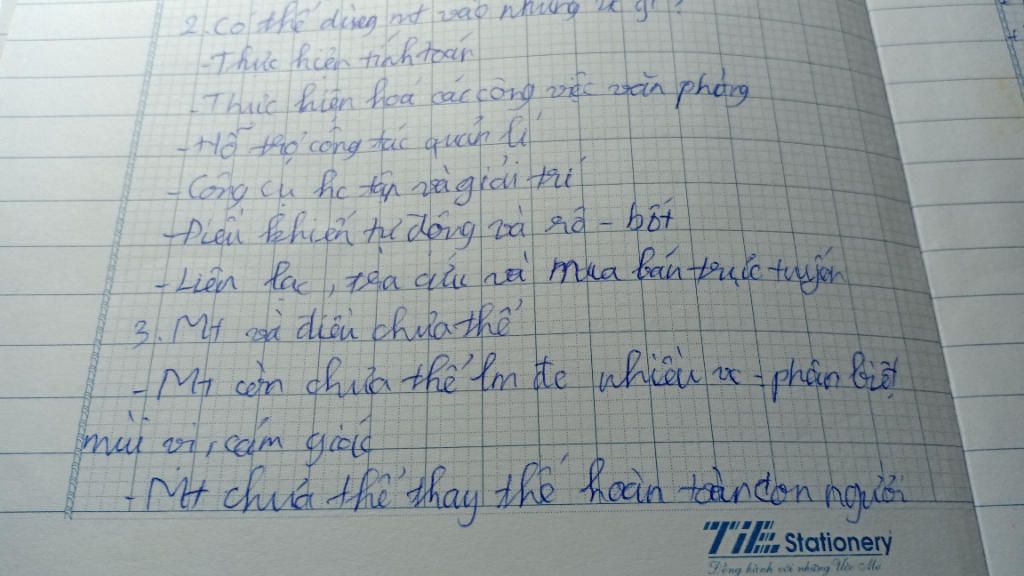 2. Có thể dùng mt vào những vc gì?
- Thực hiện tính toán
- Thực hiện hoá các công việc văn phòng
- Hỗ trợ công tác quản lí
- Công cụ hc tập và giải trí
- Điều khiển tự động và rô - bốt
- Liên lạc, tra cứu và mua bán trực tuyến
3. Mt và điều chưa thể
- Mt còn chưa thể lm đc nhiều vc - phân biệt
mùi vị, cảm giác
- Mt chưa thể thay thế hoàn toàn con người
TiE Stationery
Đồng hành với những Ước Mơ